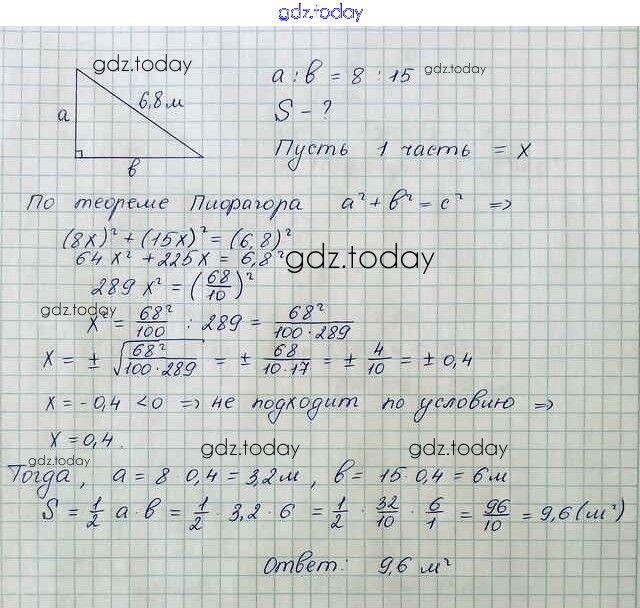 gdz.today
gdz.today
a : в = 8 : 15 gdz.today
a
6,8 м
S - ?
в
Пусть 1 часть = x
По теореме Пиорагора a² + в² = c² ⇒
(8x)² + (15x)² = (6,8)²
64x² + 225x = 6,8² gdz.today
289x² = (68/10)²
gdz.today
x² = 68²/100 : 289 = 68²/(100·289)
x = ± √(68²/(100·289)) = ± 68/(10·17) = ± 4/10 = ± 0,4
x = -0,4 < 0 ⇒ не подходит по условию ⇒
x = 0,4.
gdz.today gdz.today gdz.today
Тогда, a = 8·0,4 = 3,2 м, в = 15·0,4 = 6 м
S = 1/2 a·в = 1/2 · 3,2 · 6 = 1/2 · 32/10 · 6/1 = 96/10 = 9,6 (м²)
Ответ: 9,6 м²